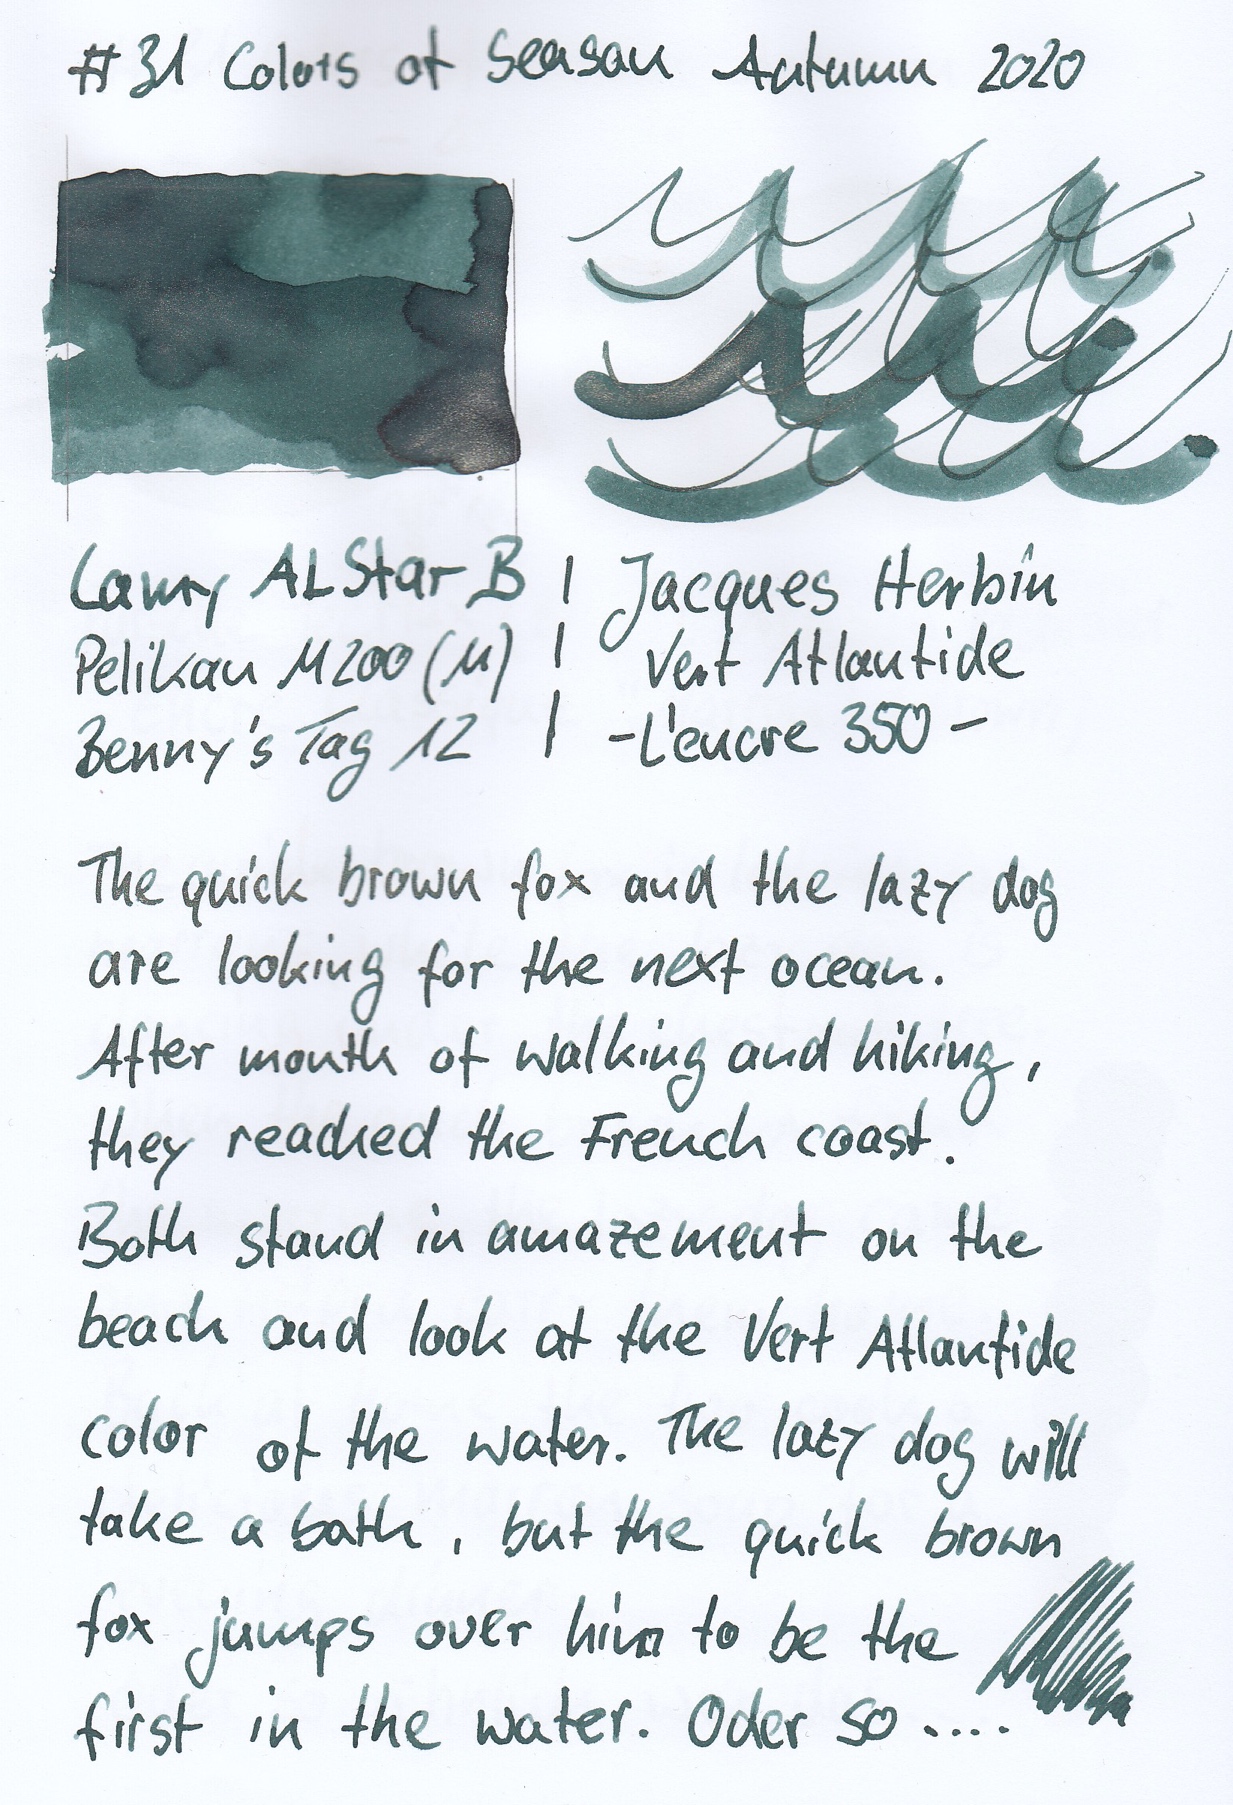 #31 Colors of Season Autumn 2020
Lamy ALStar B | Jacques Herbin
Pelikan M200 (M) | Vert Atlantide
Benny's Tag 12 | -L'encre 350-
The quick brown fox and the lazy dog
are looking for the next ocean.
After month of walking and hiking,
they reached the French coast.
Both stand in amazement on the
beach and look at the Vert Atlantide
color of the water. The lazy dog will
take a bath, but the quick brown
fox jumps over him to be the
first in the water. Oder so ....